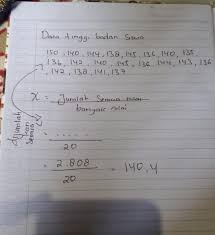 Data tinggi badan Siswa
150, 140, 144, 138, 145, 136, 140, 135,
136, 142, 140, 145, 136, 144, 143, 136
, 142, 138, 141, 137
x̄ = Jumlah Semua nilai
banyak nilai
= ......
20
= 2.808 = 140,4
20
Jumlah
Semua